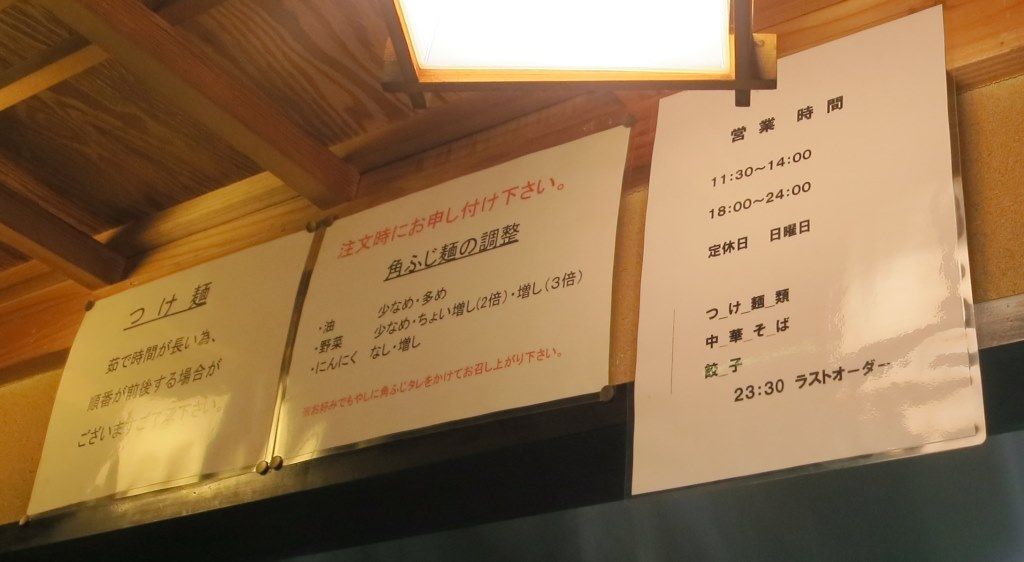 つけ麺
茹で時間が長い為、
順番が前後する場合が
ございますご了承下さい。
注文時にお申し付け下さい。
角ふじ麺の調整
・油 少なめ・多め
・野菜 少なめ・ちょい増し(2倍)・増し(3倍)
・にんにく なし・増し
※お好みでもやしに角ふじタレをかけてお召し上がり下さい。
営業時間
11:30～14:00
18:00～24:00
定休日 日曜日
つ_け_麺_類
中_華_そ_ば
餃_子
23:30 ラストオーダー